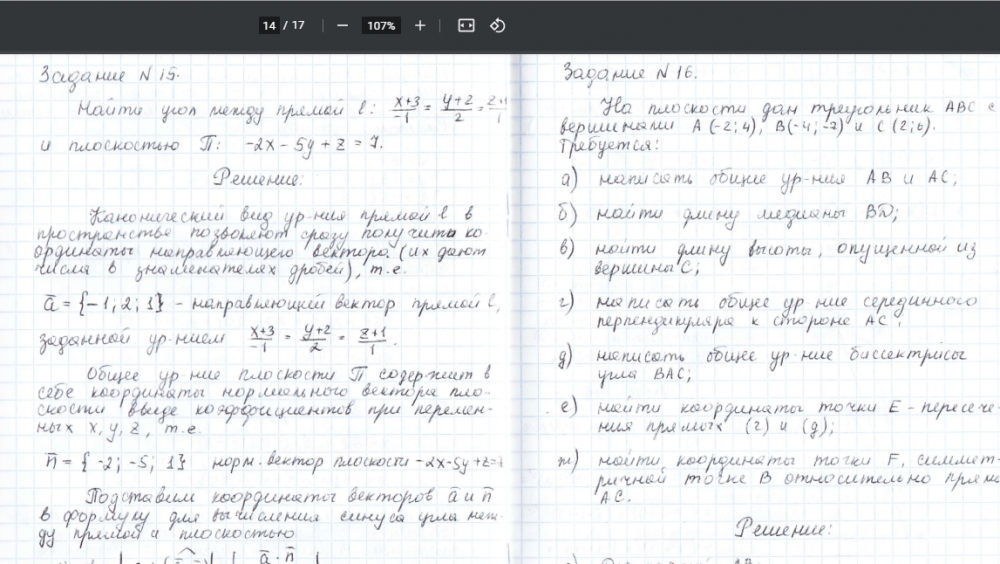 14 / 17 — 107% +
Задание N 15.
Найти угол между прямой l: (x+3)/-1 = (y+2)/2 = (z+1)/1
и плоскостью П: -2x - 5y + z = 7.
Решение:
Канонический вид ур-ния прямой l в
пространстве позволяют сразу получить ко-
ординаты направляющего вектора (их дают
числа в знаменателях дробей), т.е.
ā = {-1; 2; 1} - направляющий вектор прямой l,
заданной ур-нием (x+3)/-1 = (y+2)/2 = (z+1)/1.
Общее ур-ние плоскости П содержит в
себе координаты нормального вектора пло-
скости в виде коэффициентов при перемен-
ных x, y, z, т.е.
n̄ = {-2; -5; 1} норм. вектор плоскости -2x-5y+z=7
Подставим координаты векторов ā и n̄
в формулу для вычисления синуса угла меж-
ду прямой и плоскостью
ā · n̄
Задание N 16.
На плоскости дан треугольник ABC с
вершинами A (-2; 4), B(-4; -2) и C (2; 6).
Требуется:
а) написать общие ур-ния AB и AC;
б) найти длину медианы BD;
в) найти длину высоты, опущенной из
вершины C;
г) написать общее ур-ние серединного
перпендикуляра к стороне AC;
д) написать общее ур-ние биссектрисы
угла BAC;
е) найти координаты точки E - пересече-
ния прямых (г) и (д);
ж) найти координаты точки F, симмет-
ричной точке B относительно прямо
AC.
Решение: